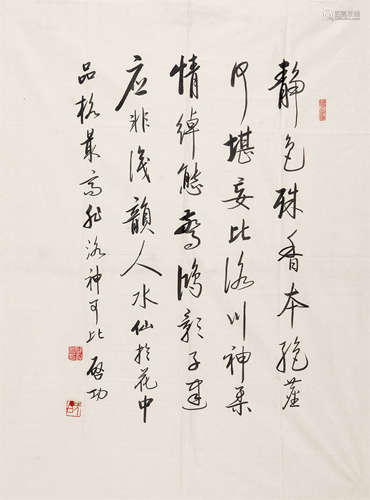 静色殊香本绝尘
何堪妄比洛川神柔
情绰态惊鸿影子建
应非浅韵人水仙于花中
品格最高非洛神可比 启功